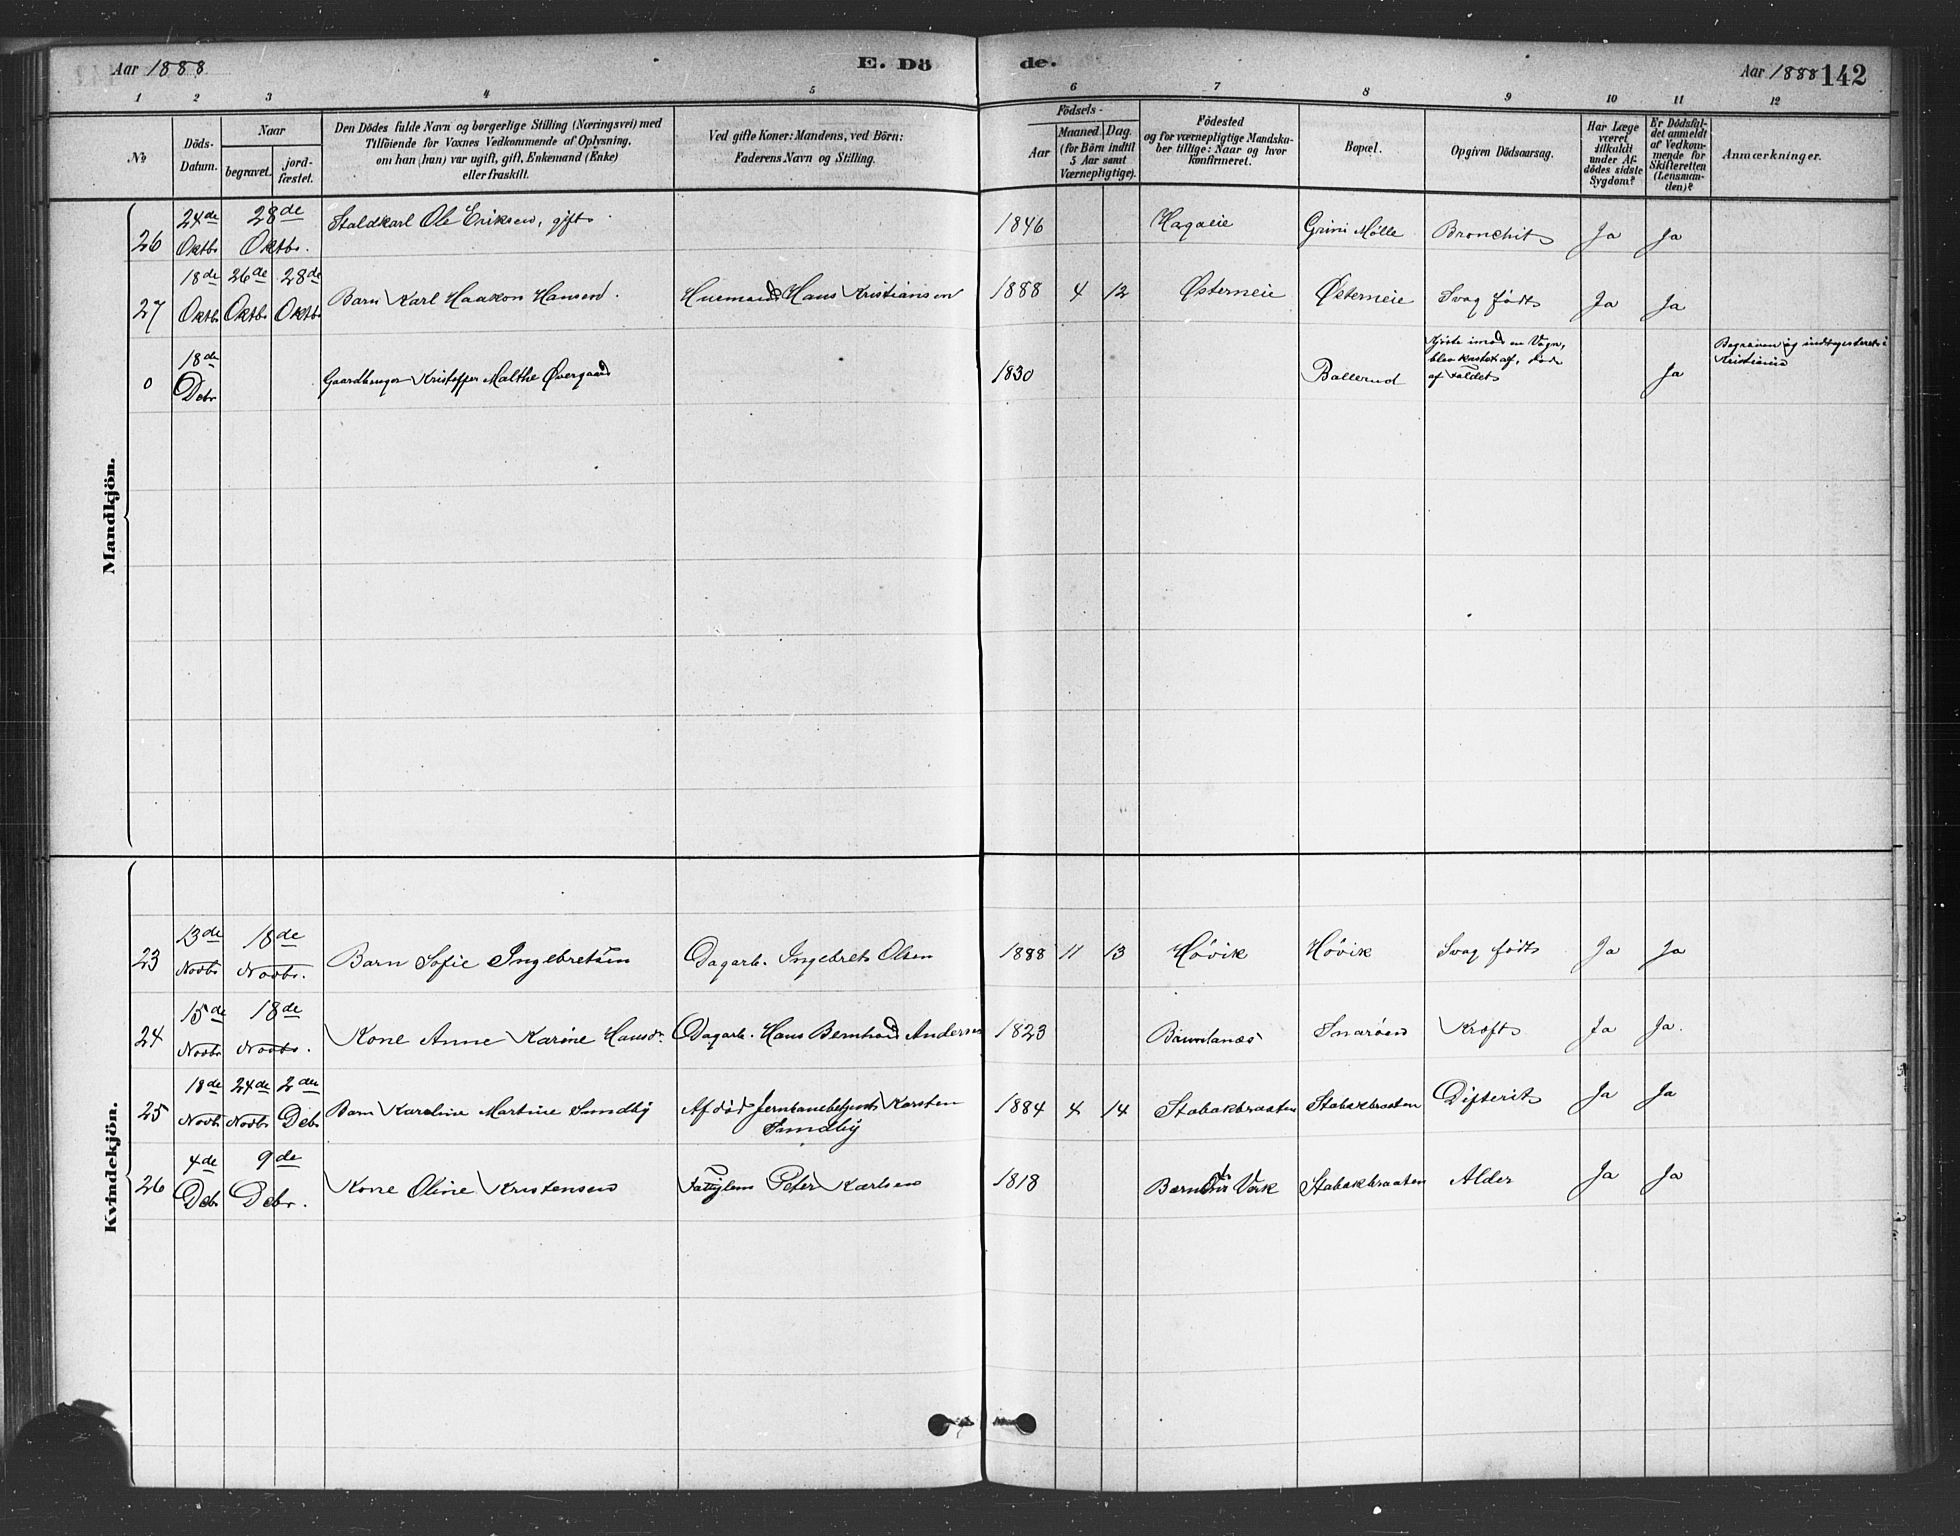 Aar 1888
E. Dö
de.
Aar 1888 142
1 2 3 4 5 6 7 8 9 10 11 12
No
Döds-
Datum.
Naar
begravet.
jord-
fæstet.
Den Dödes fulde Navn og borgerlige Stilling (Næringsvei) med
Tilföiende for Voxnes Vedkommende af Oplysning,
om han (hun) var ugift, gift, Enkemand (Enke)
eller fraskilt.
Ved gifte Koner: Mandens, ved Börn:
Faderens Navn og Stilling.
Födsels-
Aar
Maaned. Dag.
(for Börn indtil
5 Aar samt
Værnepligtige).
Födested
og for værnepligtige Mandska-
ber tillige: Naar og hvor
konfirmeret.
Bopæl.
Opgiven Dödsaarsag.
Har Læge
været
tilkaldt
under Af-
dödes sidste
Sygdom?
Er Dödsfal-
det anmeldt
af Vedkom-
mende for
Skifteretten
(Lensman-
den)?
Anmærkninger.
Mandkjön.
26 24de Oktbr 28de Oktbr. Staldkarl Ole Eriksen, gift 1846 Hagaeie Grini Mølle Bronchit Ja Ja
27 18de Oktbr 26de Oktbr 28de Oktbr Barn Karl Haakon Hansen. Huusmand Hans Kristiansen 1888 4 12 Østerneie Østerneie Svag født Ja Ja
0 18de Debr Gaardbruger Kristoffer Malthe Øvergaard 1830 Ballerud Kjørte imod en Vogn,
blev kastet af, død
af Faldet Ja Begraven og indtegnet i
Kristiania
Kvindekjön.
23 13de Novbr 18de Novbr. Barn Sofie Ingebretsen Dagarb. Ingebret Olsen 1888 11 13 Høvik Høvik Svag født Ja Ja
24 15de Novbr 18de Novbr. Kone Anne Karine Hansdr. Dagarb. Hans Bernhard Andersen 1823 Snarøen Kræft Ja Ja.
25 18de Novbr 24de Novbr 2den Debr Barn Karoline Martine Sundby Afdød Jernbanebetjent Karsten
Sundby 1884 4 14 Stabakbraaten Stabakbraaten Difterit Ja Ja
26 4de Debr 9de Debr. Kone Oline Kristensen Fattiglem Peter Karlsen 1818 Bærums Værk Stabakbraaten Alder Ja Ja